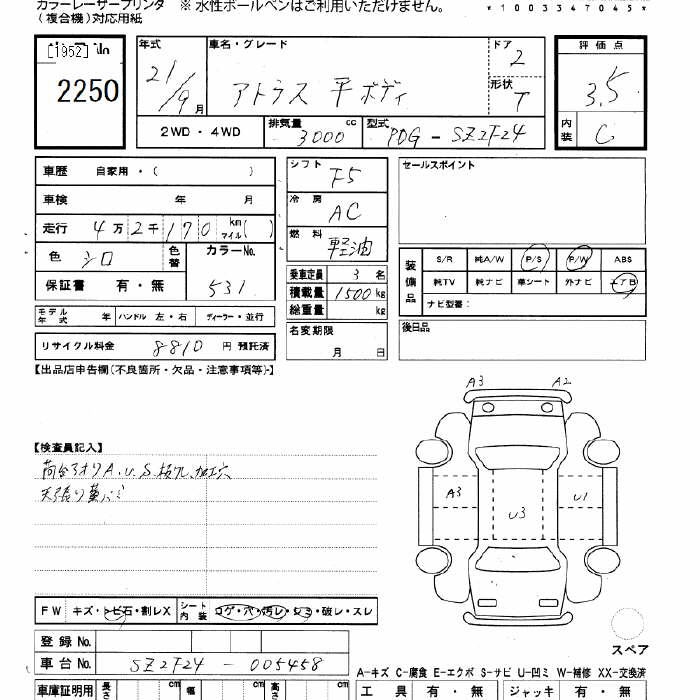 カラーレーザープリンタ ※ 水性ボールペンはご利用いただけません。 *1003347045*
(複合機)対応用紙
[1952]
2250
年式 21/9月
車名・グレード アトラス 平ボディ
ドア 2
形状 T
評価点 3.5
内装 C
2WD・4WD 排気量 3000 cc 型式 PDG-SZ2F24
車歴 自家用・( )
車検 年 月
走行 4万2千170 km マイル( )
色 シロ 色替 カラーNo. 531
保証書 有・無
モデル年式 年 ハンドル 左・右 ディーラー・並行
リサイクル料金 8810 円 預託済
シフト F5
冷房 AC
燃料 軽油
乗車定員 3 名
積載量 1500 kg
総重量 kg
名変期限 月 日
セールスポイント
装備品 S/R 純A/W P/S P/W ABS
純TV 純ナビ 革シート 外ナビ エアB
ナビ型番:
後日品
【出品店申告欄(不良箇所・欠品・注意事項等)】
【検査員記入】
荷台アオリA.U.S.
天張り
A3 A2
A3 U3 U1
FW キズ・トビ石・割レX シート内装 コゲ・穴・汚レ・シミ・破レ・スレ
スペア
登録No.
車台No. SZ2F24-005458
A-キズ C-腐食 E-エクボ S-サビ U-凹ミ W-補修 XX-交換済
車庫証明用 長さ cm 幅 cm 高さ cm
工具 有・無 ジャッキ 有・無